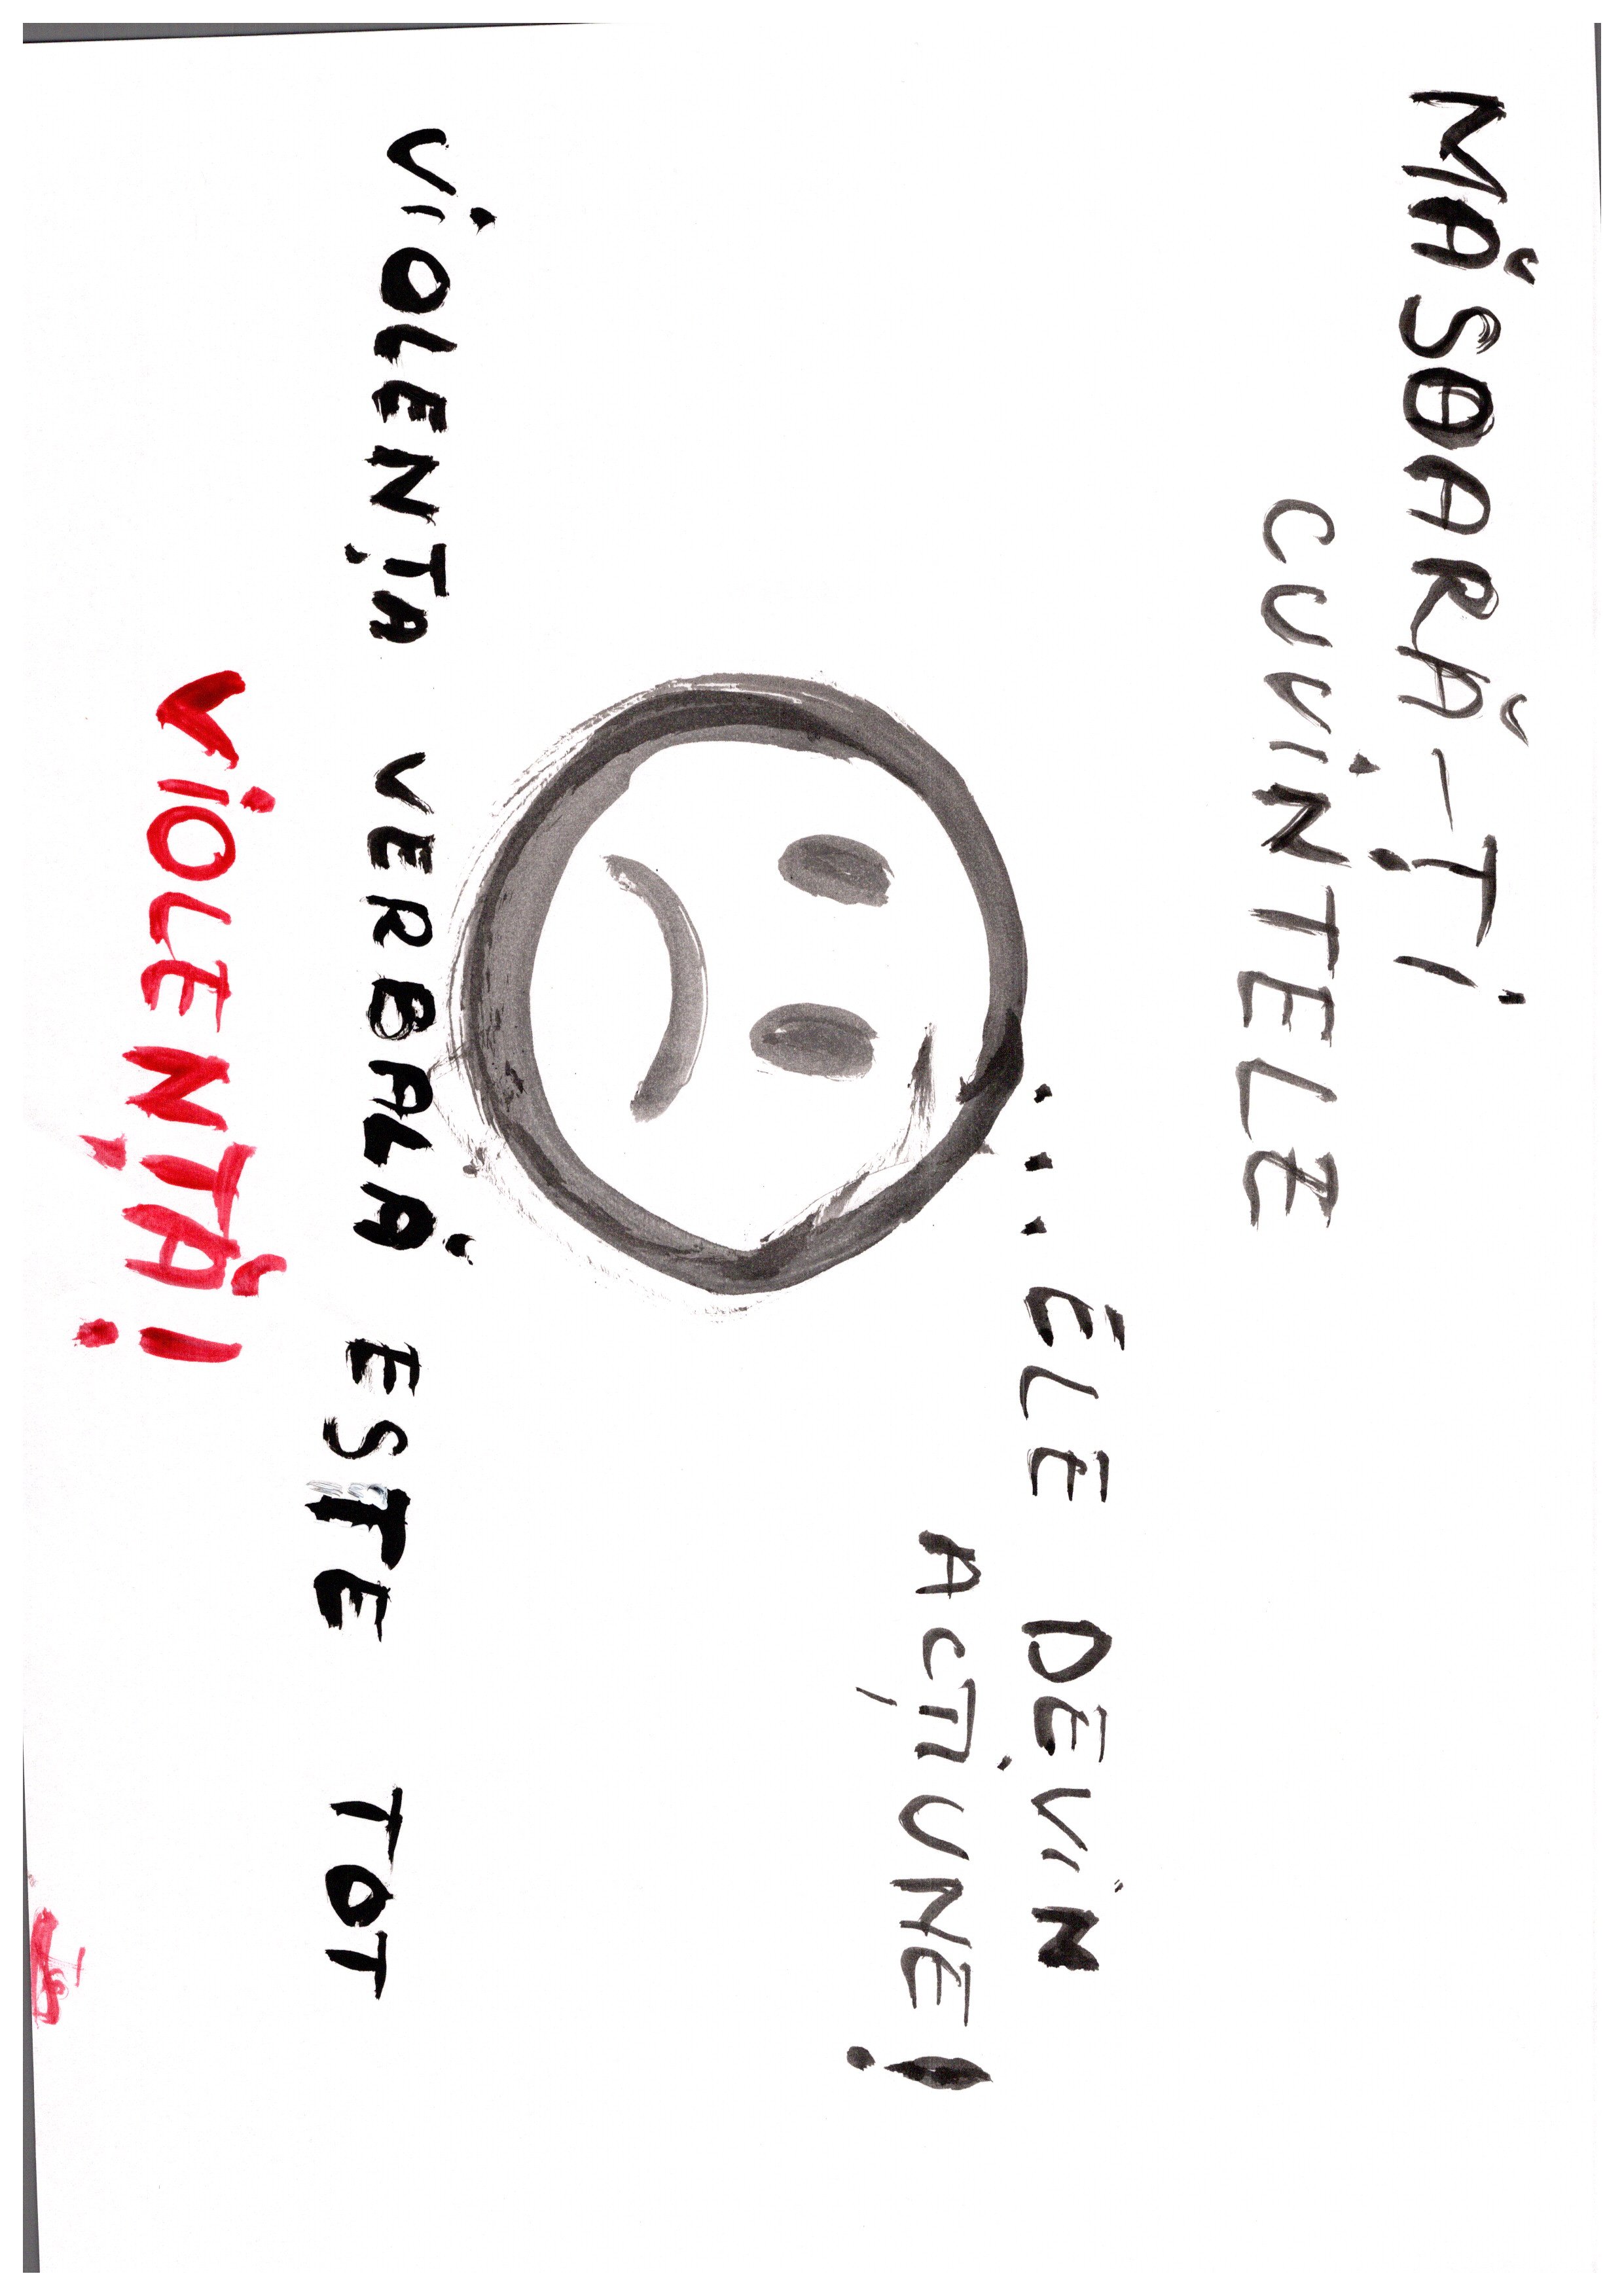 MĂSOARĂ-ȚI
CUVINTELE
...ELE DEVIN
ACȚIUNE!
VIOLENȚA VERBALĂ ESTE TOT
VIOLENȚĂ!